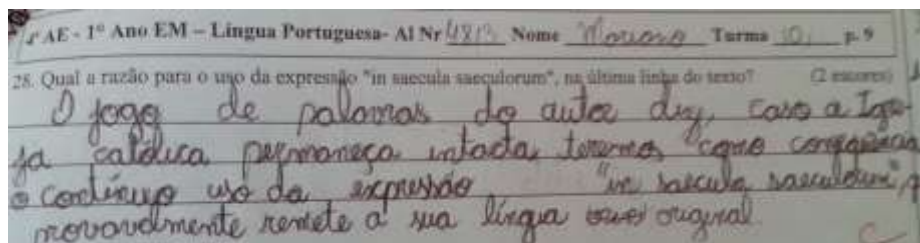 ª AE - 1º Ano EM – Língua Portuguesa- Al Nr 4813 Nome Mariana Turma 101 p. 9
28. Qual a razão para o uso da expressão "in saecula saeculorum", na última linha do texto? (2 escores)
O jogo de palavras do autor diz, caso a Igre-
ja católica permaneça intacta, teremos como
o contínuo uso da expressão "in saecula saeculorum",
provavelmente remete à sua língua original.